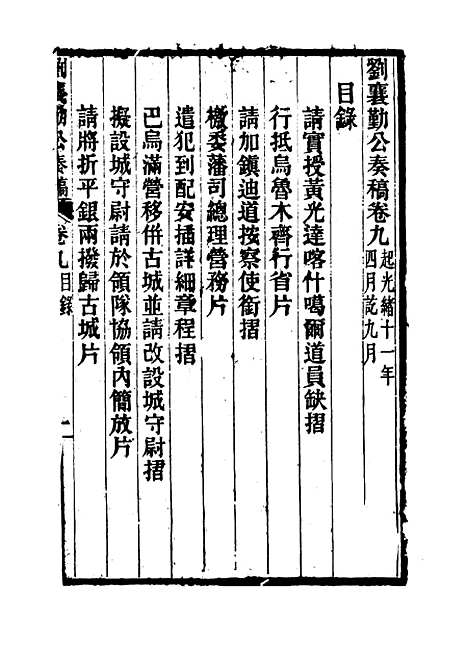 劉襄勤公奏稿卷九起光緒十一年四月訖九月
目錄
請實授黃光達喀什噶爾道員缺摺
行抵烏魯木齊行省片
請加鎮迪道按察使銜摺
檄委藩司總理營務片
遣犯到配安插詳細章程摺
巴烏滿營移併古城並請改設城守尉摺
擬設城守尉請於領隊協領內簡放片
請將折平銀兩撥歸古城片
劉襄勤公奏稿 卷九目錄 一